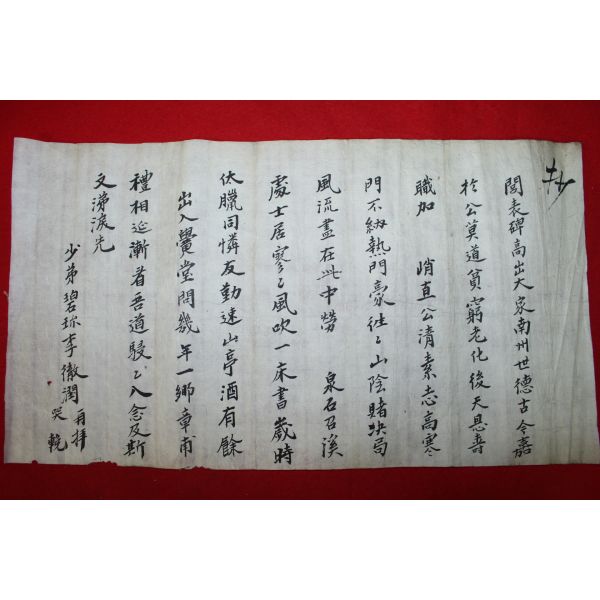 抄
閭表碑高出大家南州世德古今嘉
於公莫道貧窮老化後天恩壽
職加 峭直公淸素志高寒
門不納熱門豪往〻山陰賭決局
風流盡在此中勞 泉石召溪
處士居寥〻風吹一床書歲時
伏臘同憐友勤速山亭酒有餘
出入黌堂問幾年一鄕章甫
禮相延漸看吾道駸〻入念及斯
文涕淚先
少弟碧珎李徹潤 再拜
哭輓